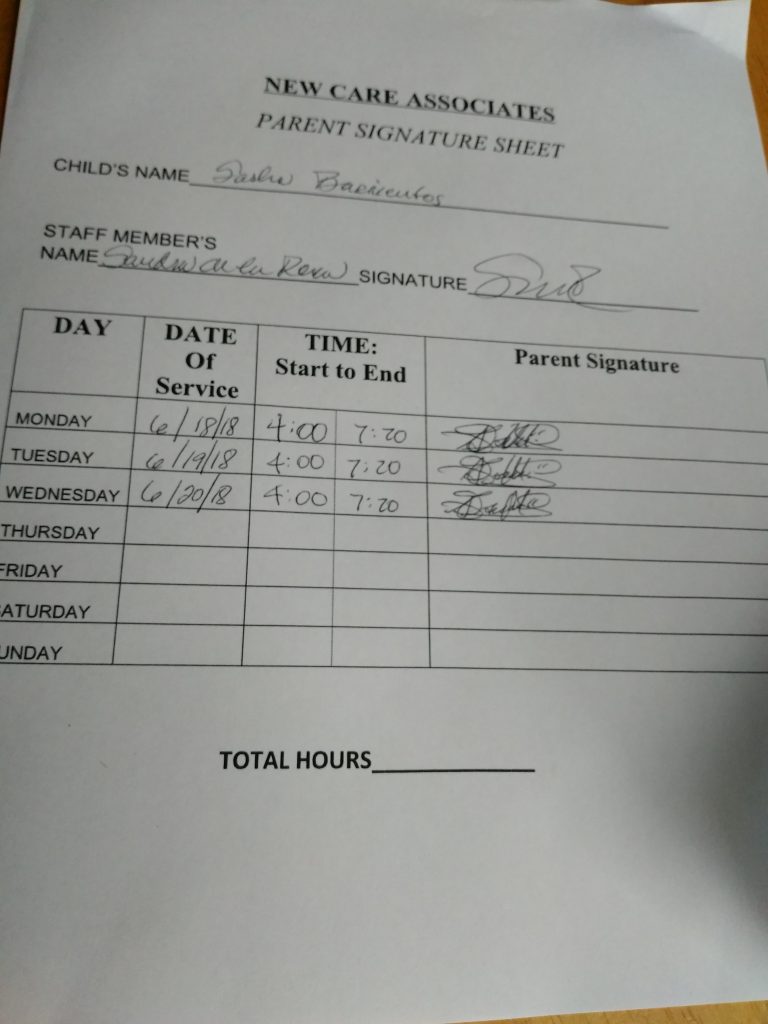 NEW CARE ASSOCIATES
PARENT SIGNATURE SHEET
CHILD'S NAME Sasha Barrientos
STAFF MEMBER'S
NAME Sandra de la Rosa SIGNATURE
DAY DATE Of Service TIME: Start to End Parent Signature
MONDAY 6/18/18 4:00 7:20
TUESDAY 6/19/18 4:00 7:20
WEDNESDAY 6/20/18 4:00 7:20
THURSDAY
FRIDAY
SATURDAY
SUNDAY
TOTAL HOURS